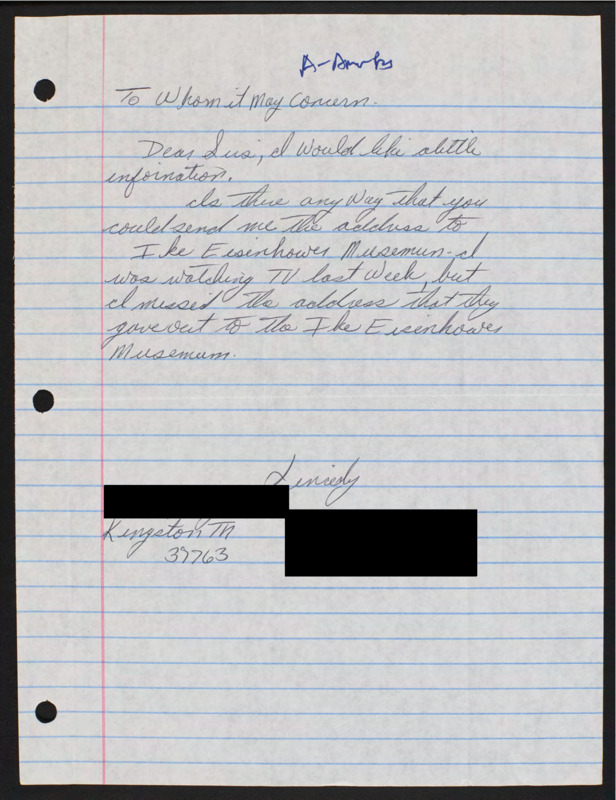 To Whom it May Concern.
Dear Sirs, I Would like alittle
infornation.
Is there any Way that you
could send me the address to
Ike Eisenhower Musemun - I
was watching TV last Week, but
I missed the address that they
gave out to the Ike Eisenhower
Musemum.
Sincedy
Kingston TN
37763